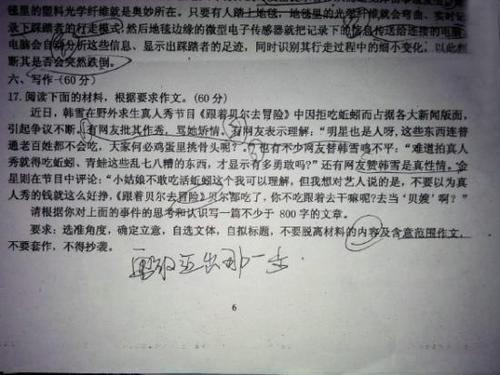 毯里的塑料光学纤维就是奥妙所在。只要有人踏上地毯，地毯里的光学纤维就会弯曲，实时记
录下踩踏者的行走模式，然后地毯边缘的微型电子传感器就把记录下的信息传送给连接的电脑
电脑会自动分析这些信息、显示出踩踏者的足迹，同时识别其行走过程中的细小变化，以此判
断其是否会突然跌倒。
六、写作(60分)
17.阅读下面的材料，根据要求作文。(60分)
近日，韩雪在野外求生真人秀节目《跟着贝尔去冒险》中因拒吃蚯蚓而占据各大新闻版面，
引起争议不断。有网友批其作秀，骂她矫情，有网友表示理解：“明星也是人呀，这些东西连普
通老百姓都不会吃，大家何必鸡蛋里挑骨头呢？”也有不少网友替韩雪鸣不平：“难道拍真人
秀就得吃蚯蚓、青蛙这些乱七八糟的东西，才显示有多勇敢吗？”还有网友赞韩雪是真性情。金
星则在节目中评论：“小姑娘不敢吃活蚯蚓这个我可以理解，但我想对艺人说的是，不要以为真
人秀的钱就这么好挣，《跟着贝尔去冒险》贝尔都吃了，你不吃跟着去干嘛呢？去当‘贝嫂’啊？”
请根据你对上面的事件的思考和认识写一篇不少于 800 字的文章。
要求：选准角度，确定立意，自选文体，自拟标题，不要脱离材料的内容及含意范围作文，
不要套作，不得抄袭。
出那一步
6